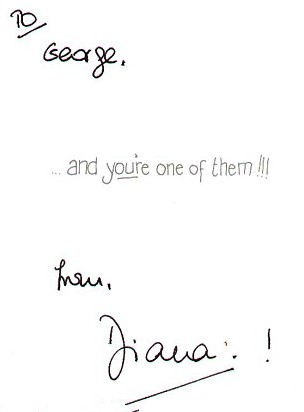 To
George.
... and you're one of them !!!
from,
Diana. !